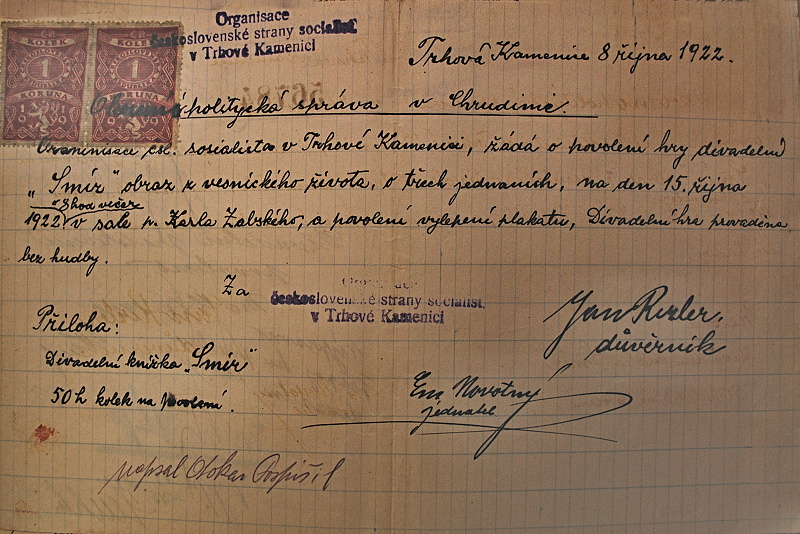 Organisace
československé strany socialist.
v Trhové Kamenici
KOLEK
1
KORUNA
1919
KOLEK
1
KORUNA
1919
Trhová Kamenice 8 října 1922.
Okresní politycká správa v Chrudimi.
Organinisace čsl. socialistů v Trhové Kamenici, žádá o povolení hry divadelní
„Smír" obraz z vesnického života, o třech jednaních, na den 15. října
v 8 hod večer
1922 v sale p. Karla Zalského, a povolení vylepení plakatu, Divadelní hra provaděna
bez hudby.
Za
Organisace
československé strany socialist.
v Trhové Kamenici
Jan Rezler,
důvěrník
Příloha:
Divadelní knížka „Smír"
50 h kolek na povolení.
Em Novotný
jednatel
napsal Otokar Pospíšil